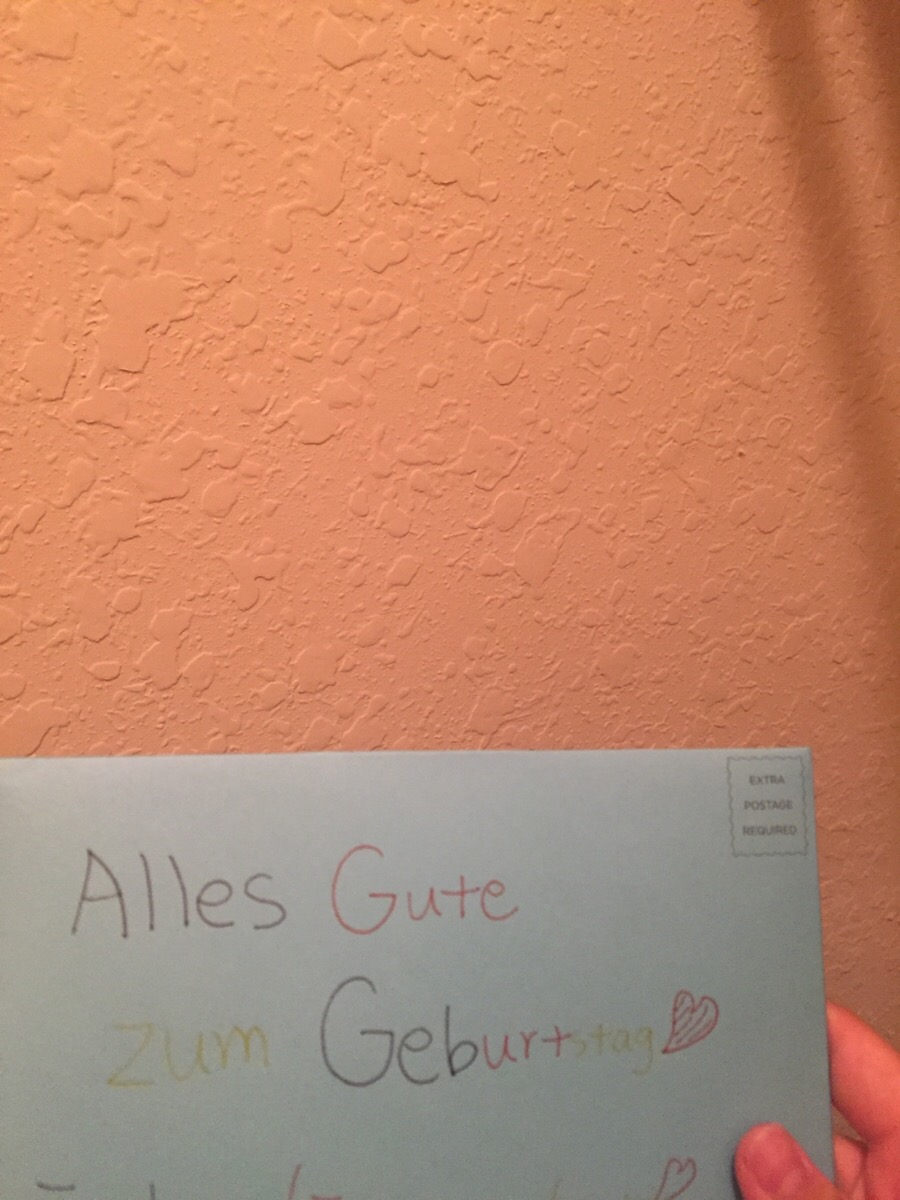 EXTRA
POSTAGE
REQUIRED
Alles Gute
zum Geburtstag